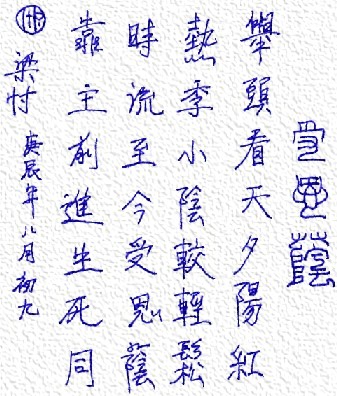 受恩蔭
舉頭看天夕陽紅
熱季小陰較輕鬆
時流至今受恩蔭
靠主前進生死同
梁忖 庚辰年八月初九